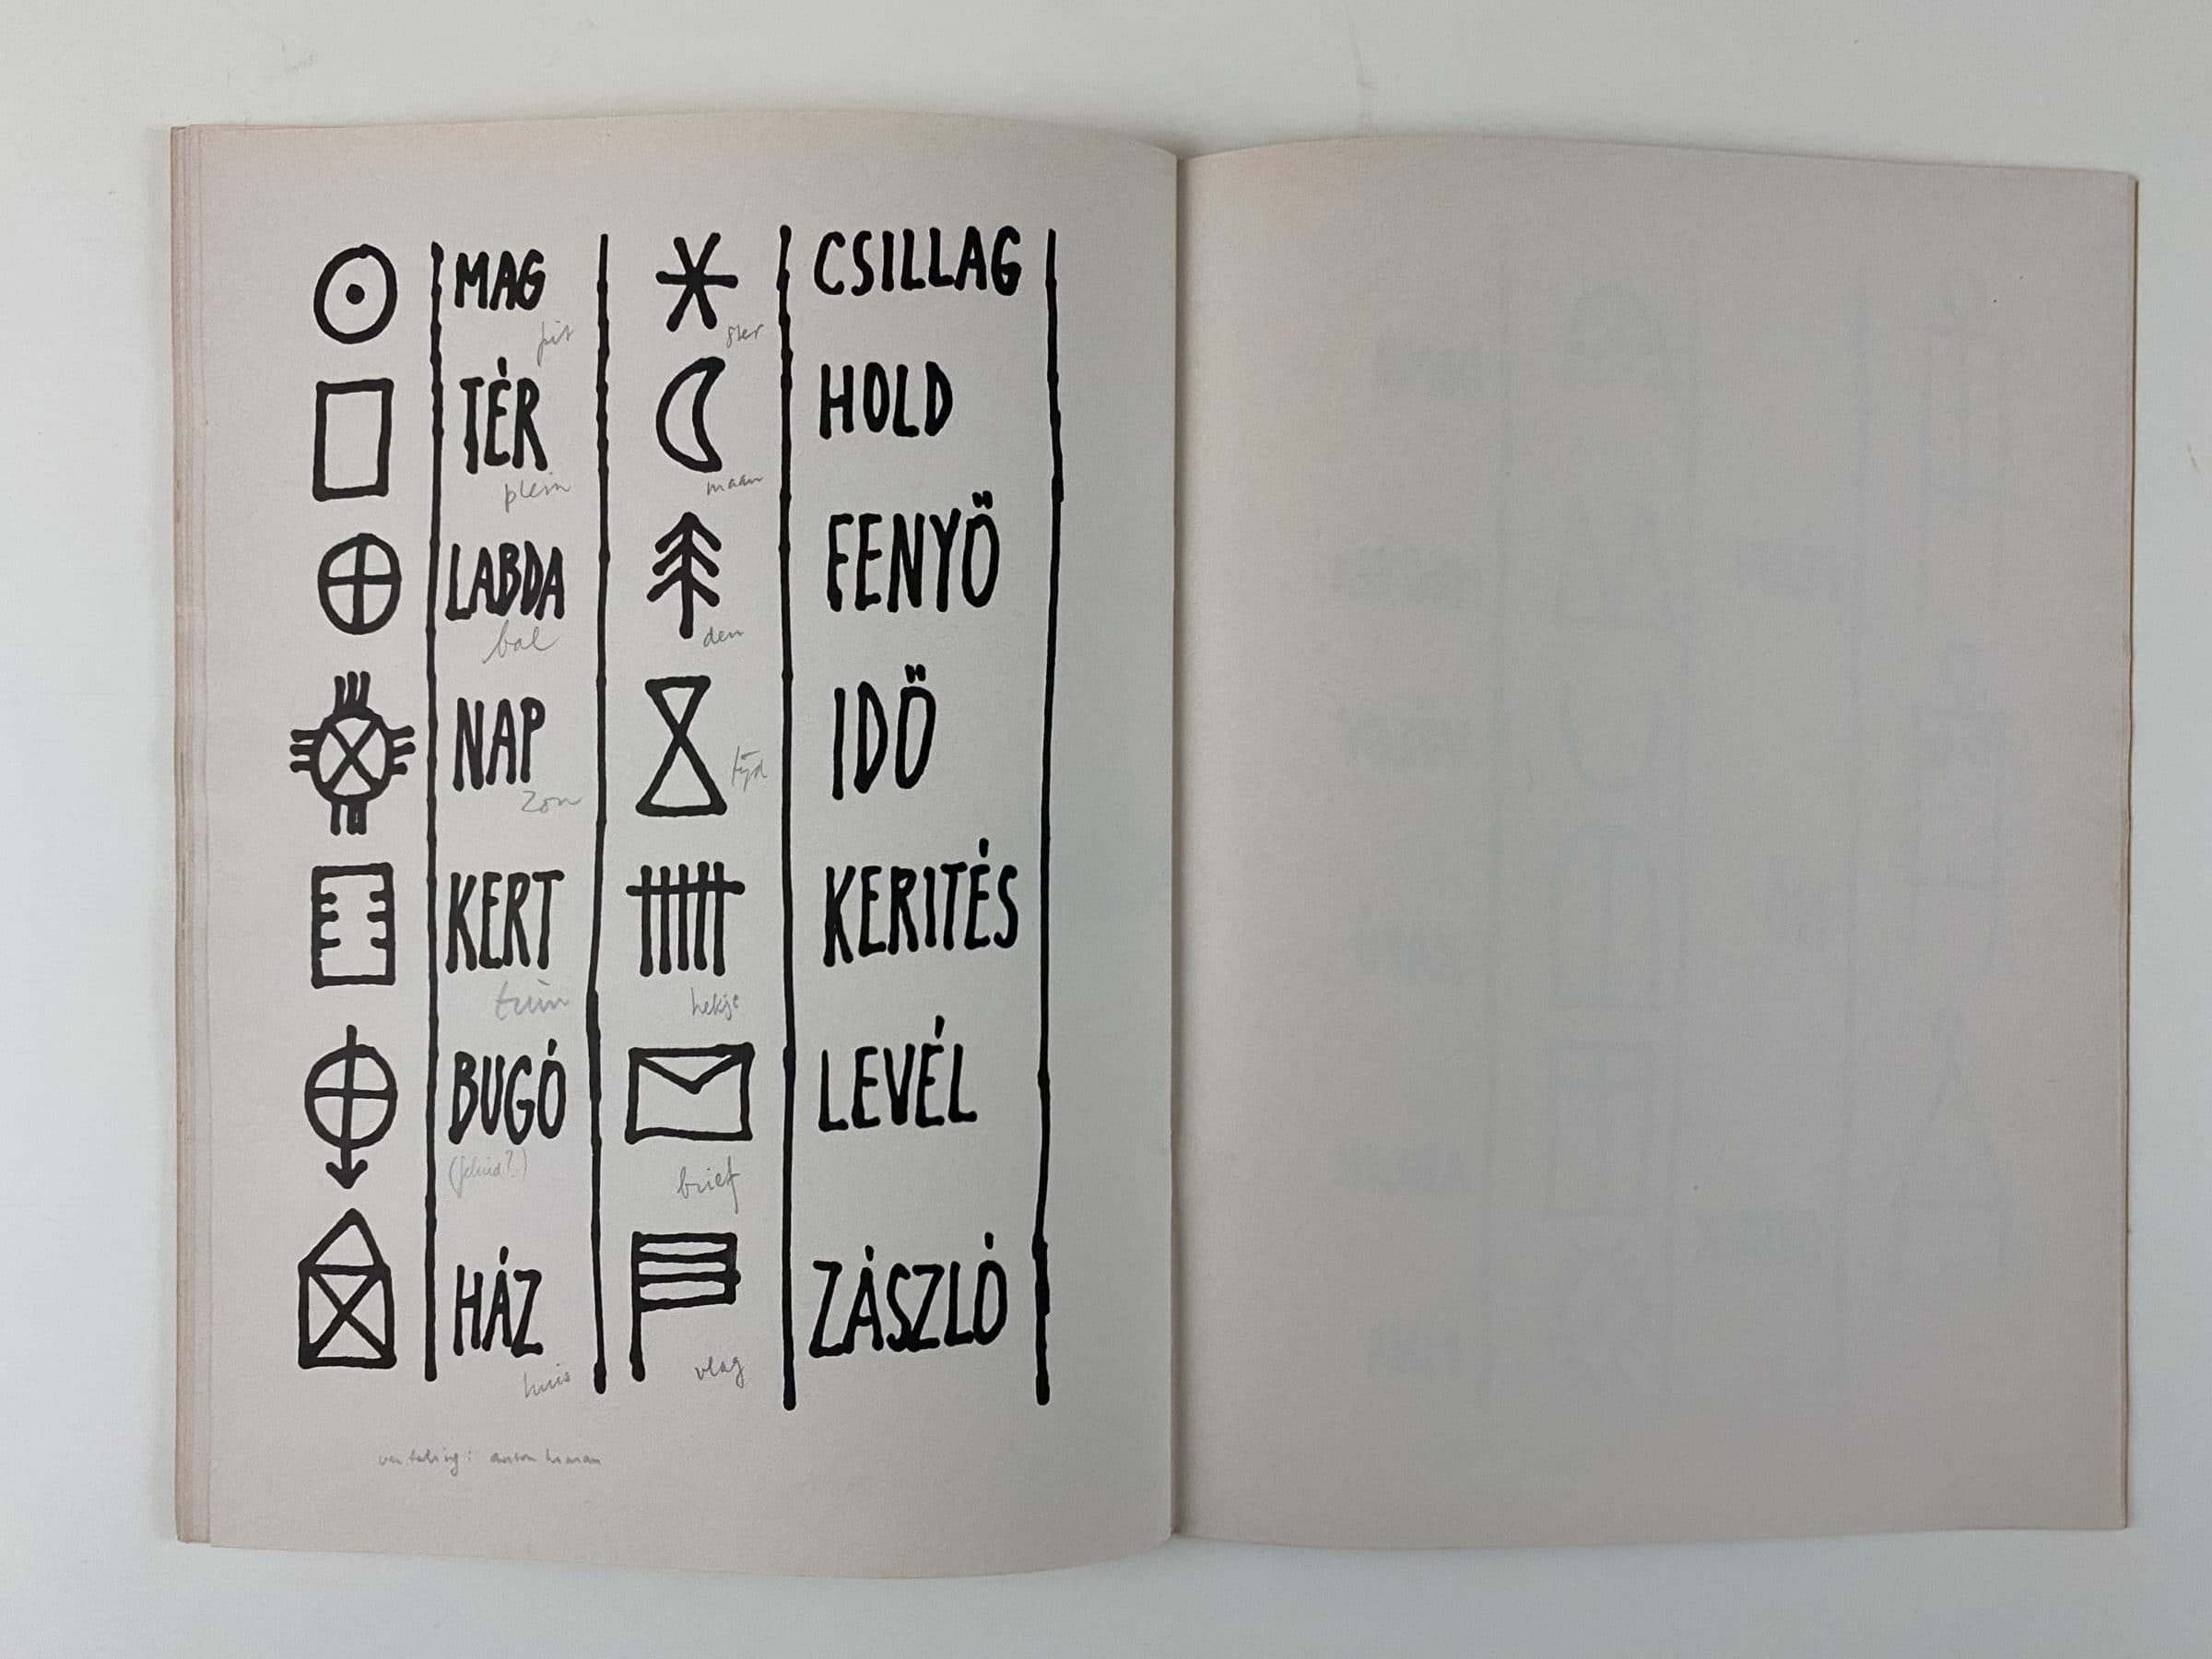 MAG
pit
TÉR
plein
LABDA
bal
NAP
zon
KERT
tuin
BUGÓ
HÁZ
huis
CSILLAG
ster
HOLD
maan
FENYŐ
den
IDŐ
tijd
KERITÉS
hekje
LEVÉL
brief
ZÁSZLÓ
vlag
vertaling: